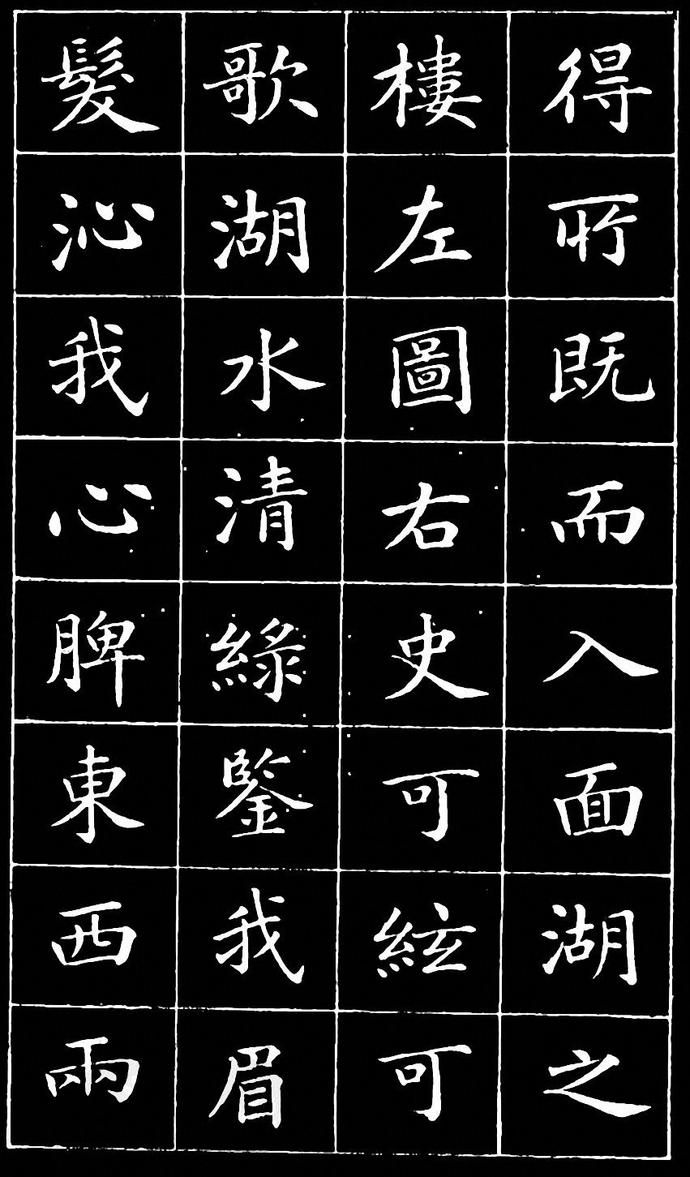 得所既而入面湖之
樓左圖右史可絃可
歌湖水清綠鑒我眉
髮沁我心脾東西兩